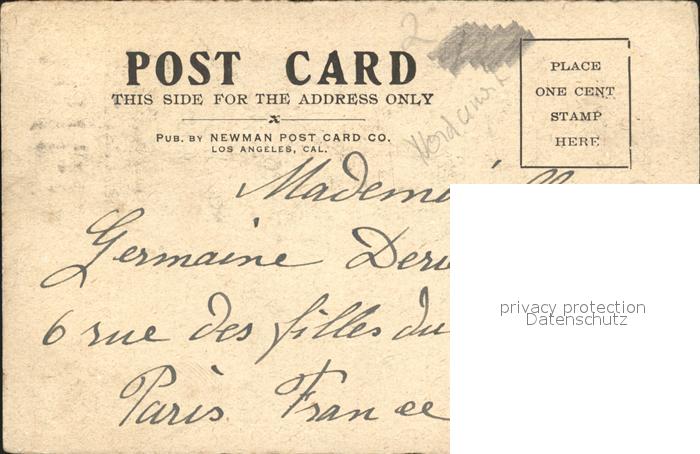 POST CARD
THIS SIDE FOR THE ADDRESS ONLY
x
PUB. BY NEWMAN POST CARD CO.
LOS ANGELES, CAL.
PLACE
ONE CENT
STAMP
HERE
2
Germaine
6 rue des filles du
Paris France
privacy protection
Datenschutz